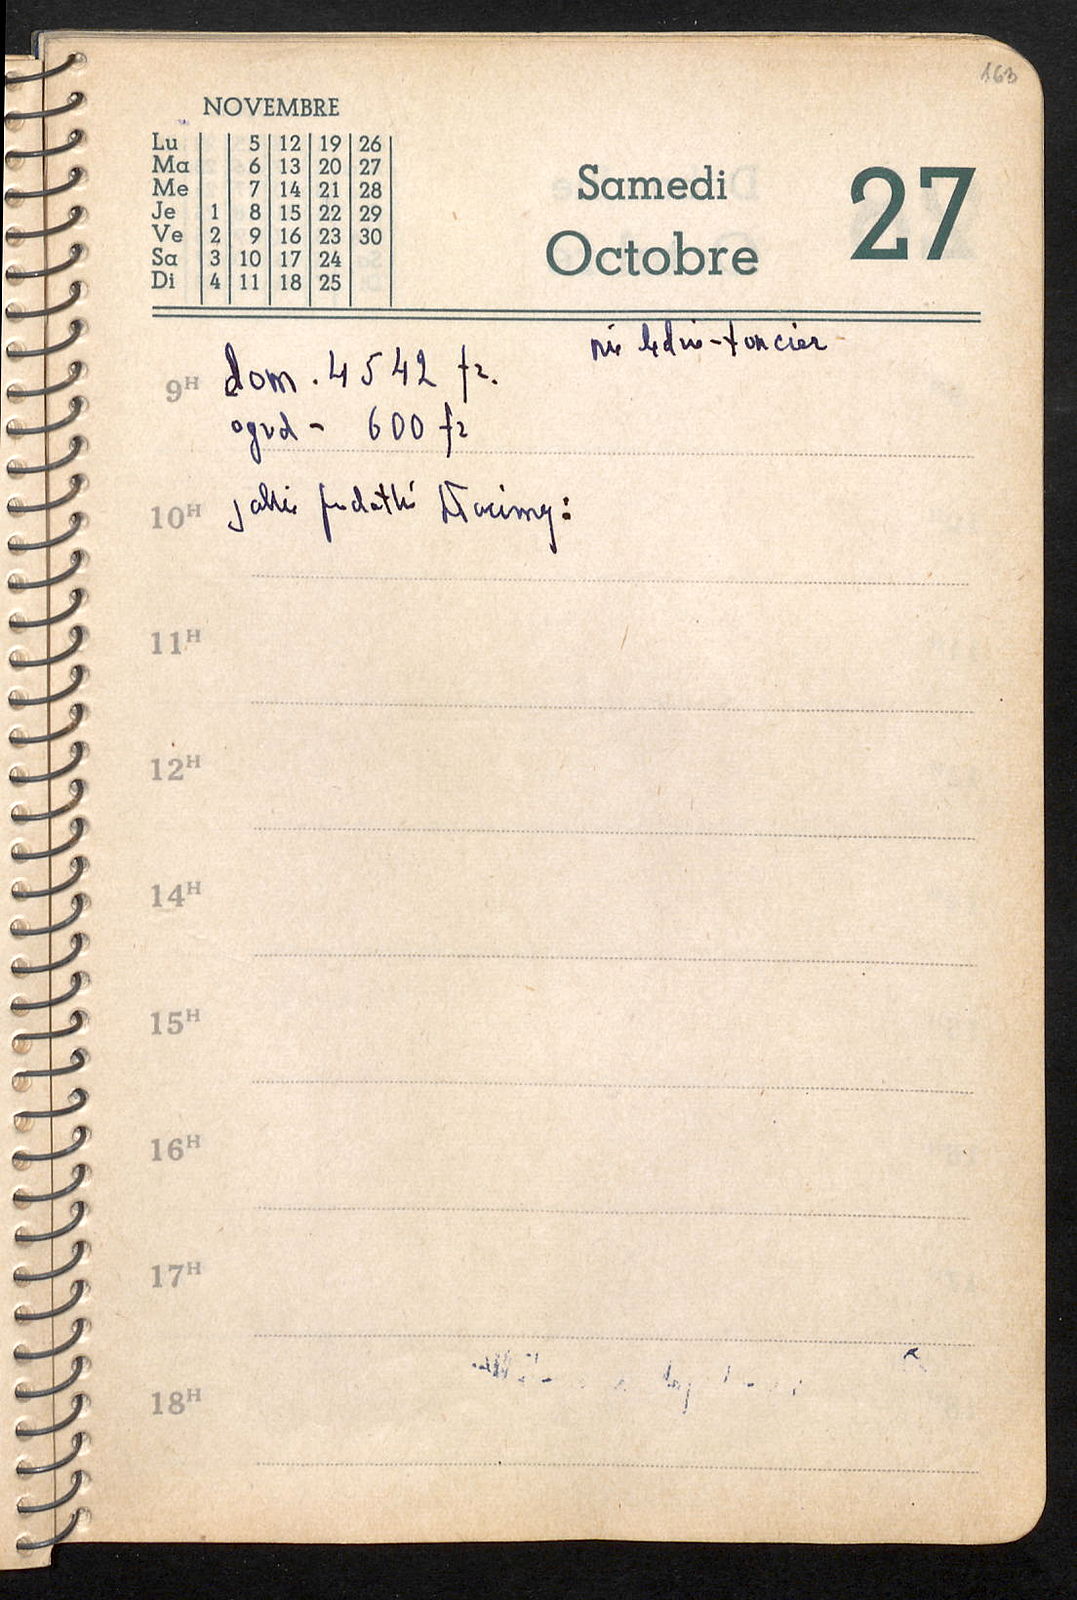 163
NOVEMBRE
Lu 5 12 19 26
Ma 6 13 20 27
Me 7 14 21 28
Je 1 8 15 22 29
Ve 2 9 16 23 30
Sa 3 10 17 24
Di 4 11 18 25
Samedi 27
Octobre
9H dom. 4542 fr.
ogrd - 600 fr
10H jakie podatki płacimy:
11H
12H
14H
15H
16H
17H
18H